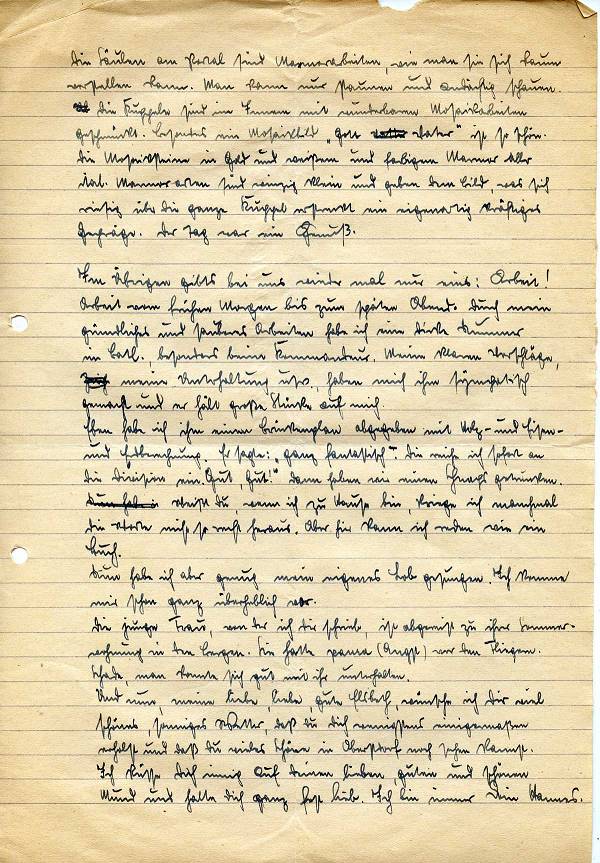 Die Säulen am Portal sind Marmorarbeiten, wie man sie sich kaum
vorstellen kann. Man kann nur staunen und andächtig schauen.
die Kuppeln sind im Innern mit wunderbaren Mosaikarbeiten
geschmückt. Besonders ein Mosaikbild "Gott Vater" ist so schön.
Die Mosaiksteine in Gold und weißem und farbigem Marmor aller
ital. Marmorarten sind winzig klein und geben dem Bild, was sich
riesig über die ganze Kuppel erstreckt ein eigenartig kräftiges
Gepräge. Der Tag war ein Genuß.
Im Übrigen gibts bei uns wieder mal nur eins: Arbeit!
Arbeit vom frühen Morgen bis zum späten Abend. Durch mein
gründliches und sauberes Arbeiten habe ich eine dicke Nummer
im Batl., besonders beim Kommandeur. Meine klaren Vorschläge,
meine Unterhaltung usw., haben mich ihm sympatisch
gemacht und er hält große Stücke auf mich.
Eben habe ich ihm einen Brückenplan abgegeben mit Holz- und Eisen-
und Erdberechnung. Er sagte: "ganz fantastisch". Die reiche ich sofort an
die Division ein. Gut, Gut!" Dann haben wir einen Schnaps getrunken.
Weißt Du, wenn ich zu Hause bin, kriege ich manchmal
die Worte nicht so recht heraus. Aber hier kann ich reden wie ein
Buch.
Nun habe ich aber genug mein eigenes Lob gesungen. Ich komme
mir schon ganz überheblich vor.
Die junge Frau, von der ich Dir schrieb, ist abgereist zu ihrer Sommer-
wohnung in den Bergen. Sie hatte paura (Angst) vor den Fliegern.
Schade, man konnte sich gut mit ihr unterhalten.
Und nun, meine liebe liebe, gute Elsbeth, wünsche ich Dir viel
schönes, sonniges Wetter, daß Du Dich wenigstens einigermaßen
erholst und daß Du vieles Schöne in Oberstdorf noch sehen kannst.
Ich küsse Dich innig auf Deinen lieben, guten und schönen
Mund und halte Dich ganz fest lieb. Ich bin immer Dein Hannes.